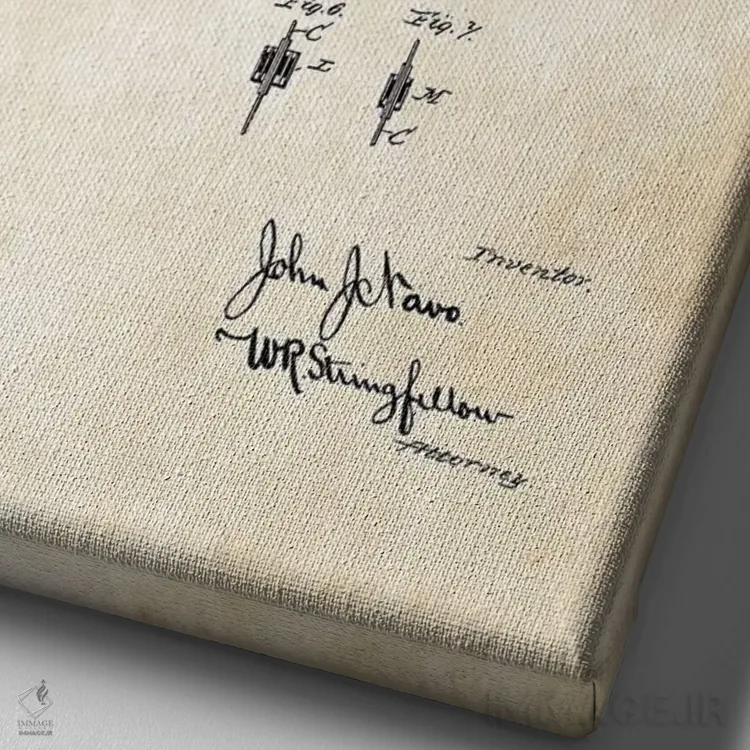 Fig. 6.
Fig. 7.
C
I
M
C
Inventor.
John J Navo.
W R. Stringfellow
Attorney
IMMAGE
IMMAGE.IR
IMMAGE.IR